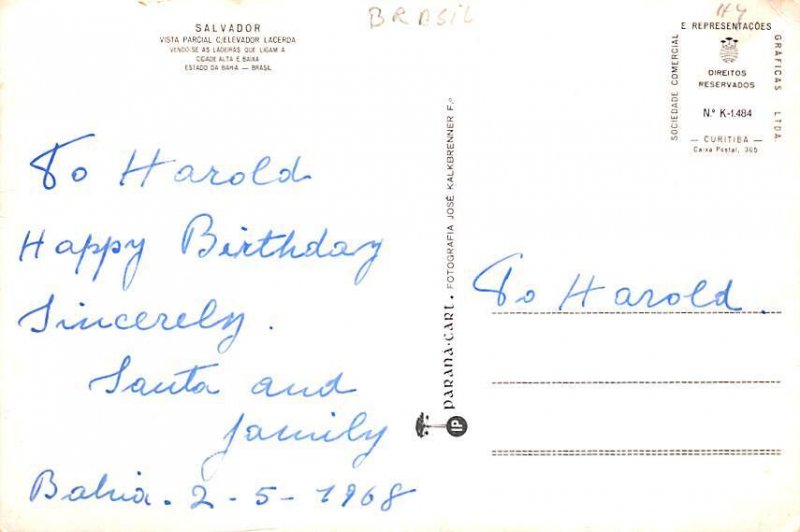 BRASIL
44
SALVADOR
VISTA PARCIAL C/ELEVADOR LACERDA
VENDO-SE AS LADEIRAS QUE LIGAM A
CIDADE ALTA E BAIXA
ESTADO DA BAHIA — BRASIL
To Harold
Happy Birthday
Sincerely.
Santa and
family
Bahia. 2-5-1968
PARANA-CART. FOTOGRAFIA JOSÉ KALKBRENNER F.º
IP
SOCIEDADE COMERCIAL
E REPRESENTAÇÕES
GRÁFICAS LTDA.
DIREITOS
RESERVADOS
N.º K-1.484
— CURITIBA —
Caixa Postal, 365
To Harold.